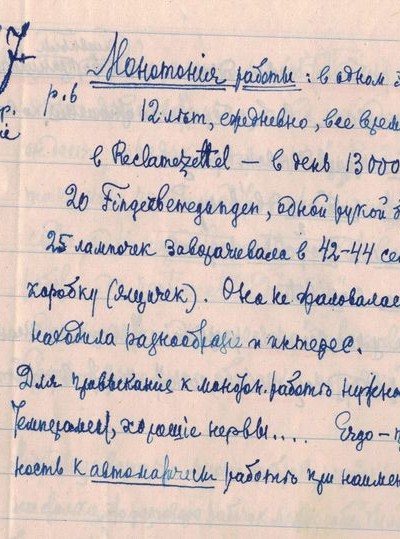 7
Монотонія работы : в одном з
р. 6
12 лѣт, ежедневно, все врем
р.
іе
в Reclamezettel — в день 13000
20 Fingerbewegungen, одной рукой б
25 лампочек заворачивала в 42–44 сек
коробку (ящичек). Она не жаловалас
находила разнообразіе и интерес.
Для привыканія к монотон. работѣ нужно
темперамент, хорошіе нервы.... Ergo – п
ность к автоматическ работѣ при наимен